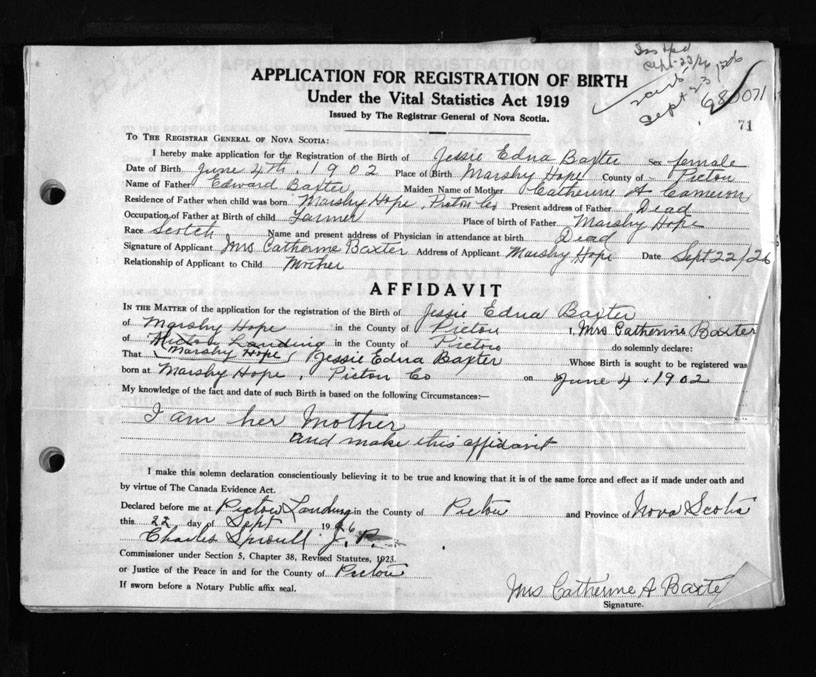 Sept 23/26
Sept 23 1926
APPLICATION FOR REGISTRATION OF BIRTH
Under the Vital Statistics Act 1919
Issued by The Registrar General of Nova Scotia.
71
TO THE REGISTRAR GENERAL OF NOVA SCOTIA:
I hereby make application for the Registration of the Birth of Jessie Edna Baxter Sex female
Date of Birth June 4th, 1902 Place of Birth Marshy Hope County of Pictou
Name of Father Edward Baxter Maiden Name of Mother Catherine A Cameron
Residence of Father when child was born Marshy Hope, Pictou Co Present address of Father Dead
Occupation of Father at Birth of child Farmer Place of birth of Father Marshy Hope
Race Scotch Name and present address of Physician in attendance at birth Dead
Signature of Applicant Mrs Catherine Baxter Address of Applicant Marshy Hope Date Sept 22/26
Relationship of Applicant to Child Mother
AFFIDAVIT
IN THE MATTER of the application for the registration of the Birth of Jessie Edna Baxter
of Marshy Hope in the County of Pictou I, Mrs Catherine Baxter
of Pictou Landing in the County of Pictou do solemnly declare:
That (Marshy Hope) Jessie Edna Baxter Whose Birth is sought to be registered was
born at Marshy Hope, Pictou Co on June 4, 1902
My knowledge of the fact and date of such Birth is based on the following Circumstances:—
I am her Mother
and make this affidavit
I make this solemn declaration conscientiously believing it to be true and knowing that it is of the same force and effect as if made under oath and
by virtue of The Canada Evidence Act.
Declared before me at Pictou Landing in the County of Pictou and Province of Nova Scotia
this 22 day of Sept 1926
Charles Sproull J. P.
Commissioner under Section 5, Chapter 38, Revised Statutes, 1923.
or Justice of the Peace in and for the County of Pictou
If sworn before a Notary Public affix seal.
Mrs Catherine A Baxter
Signature.